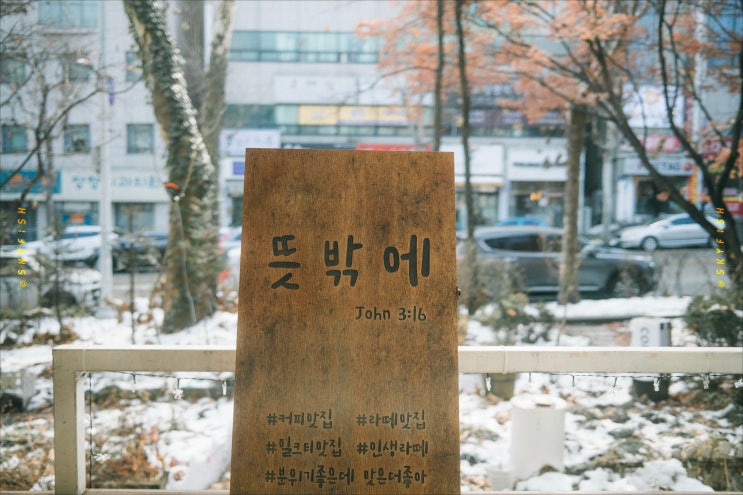 뜻밖에
John 3:16
#커피맛집 #라떼맛집
#밀크티맛집 #인생라떼
#분위기좋은데 맛은더좋아
@SKYFISH
@SKYFISH